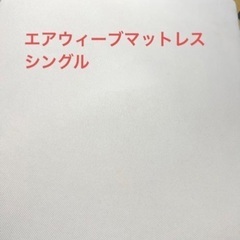 エアウィーブマットレス
シングル